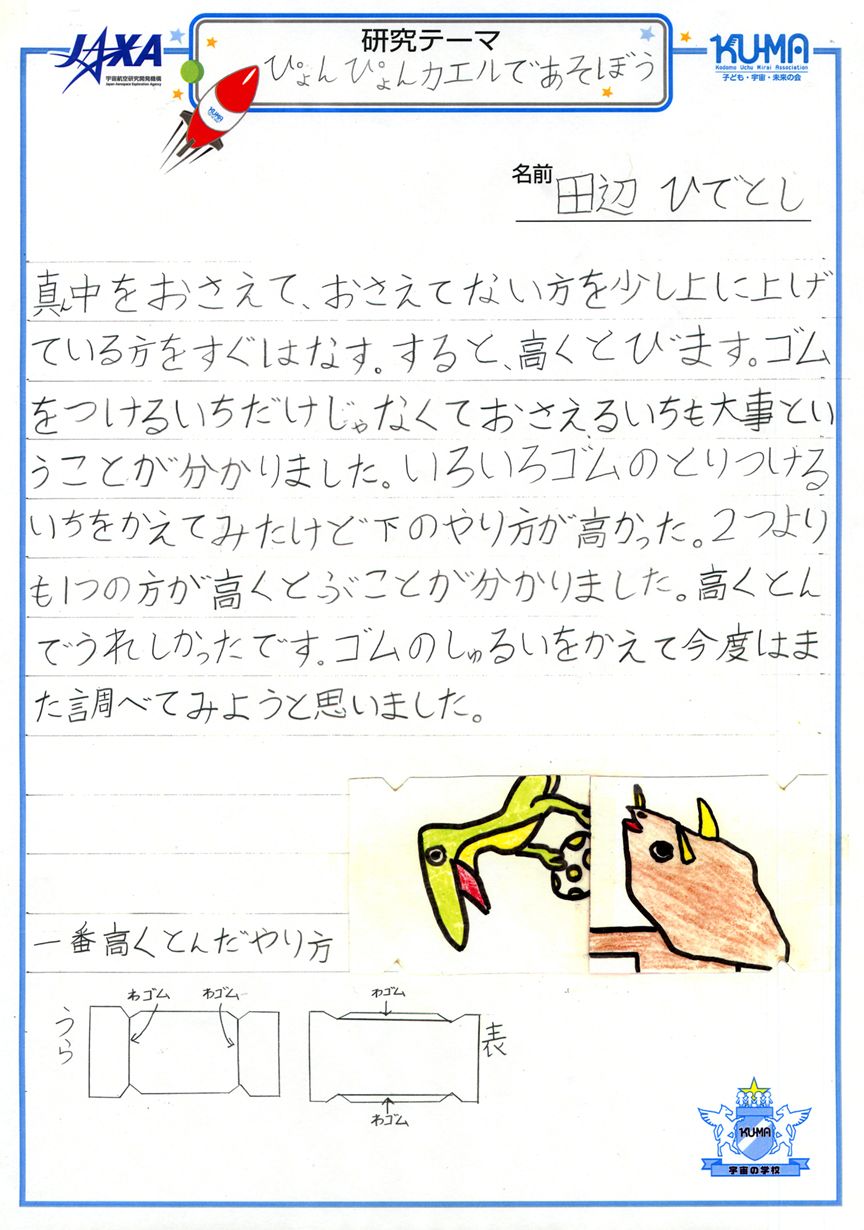 JAXA
宇宙航空研究開発機構
Japan Aerospace Exploration Agency
研究テーマ
ぴょんぴょんカエルであそぼう
KU-MA
Kodomo Uchu Mirai Association
子ども・宇宙・未来の会
KU-MA
名前 田辺 ひでとし
真ん中をおさえて、おさえてない方を少し上に上げ
ている方をすぐはなす。すると、高くとびます。ゴム
をつけるいちだけじゃなくておさえるいちも大事とい
うことが分かりました。いろいろゴムのとりつける
いちをかえてみたけど下のやり方が高かった。2つより
も1つの方が高くとぶことが分かりました。高くとん
でうれしかったです。ゴムのしゅるいをかえて今度はま
た調べてみようと思いました。
一番高くとんだやり方
うら
わゴム わゴム
わゴム
表
わゴム
KU-MA
宇宙の学校